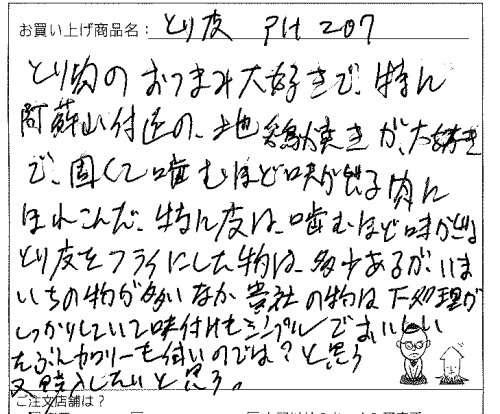 お買い上げ商品名： とり皮 PH 207
とり肉のおつまみ大好きで、特に
阿蘇山付近の、地鶏焼きが、大好き
で、固くて噛むほど味が出る肉に
ほれこんだ。特に皮は、噛むほど味がでる
とり皮をフライにした物は、多々あるが、いま
いちの物が多いなか 貴社の物は下処理が
しっかりしていて味付けもシンプルでおいしい
たぶんカロリーも低いのでは？と思う
又購入したいと思う。
ご注文店舗は？